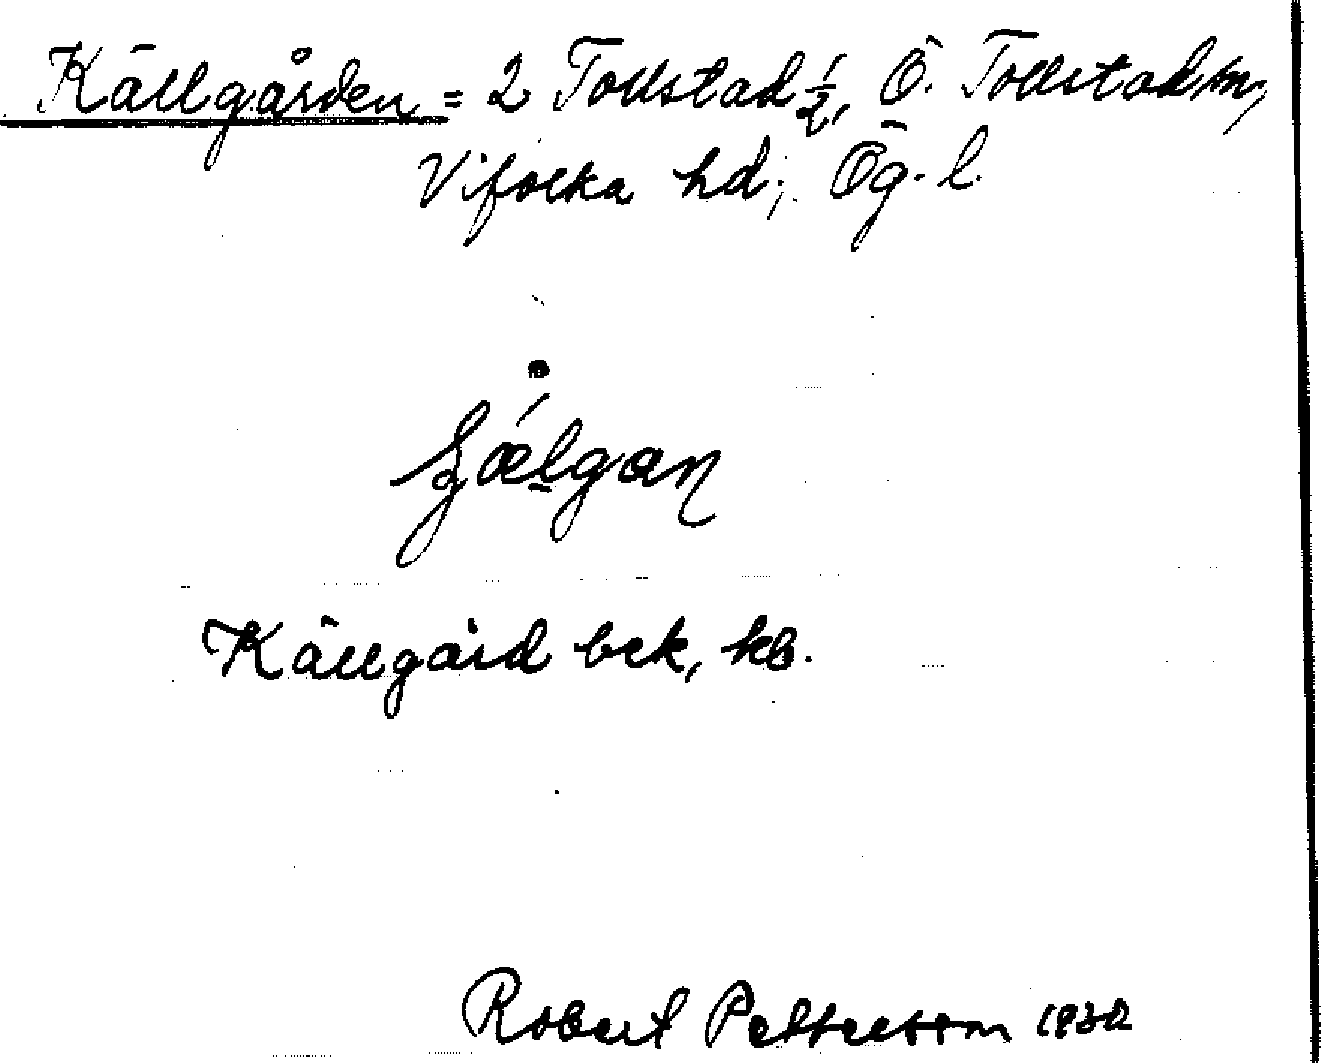 Källgården = 2 Tollstad ½, Ö. Tollstad sn,
Vifolka hd; Ög. l.
Källgård bek, kb.
Robert Pettersson 1932